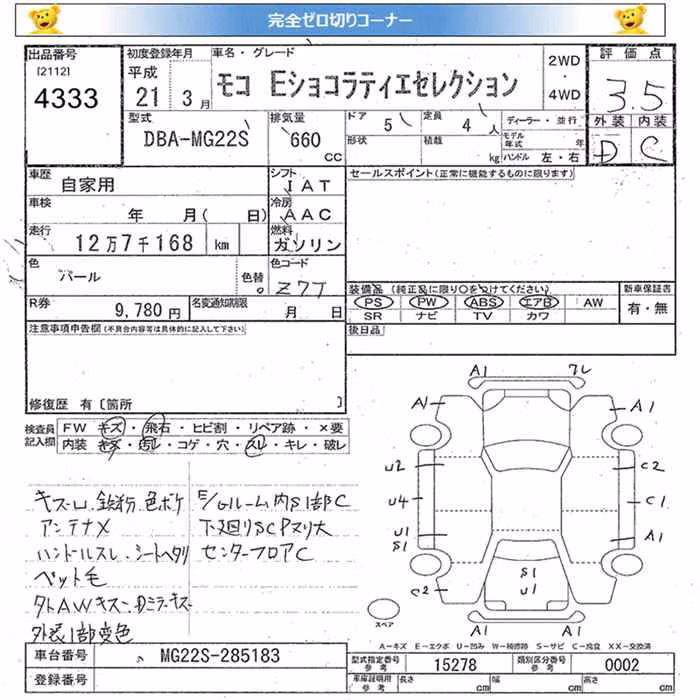 完全ゼロ切りコーナー
出品番号
[2112]
4333
初度登録年月
平成
21 3月
車名・グレード
モコ Eショコラティエセレクション
2WD
・
4WD
評価点
3.5
外装 内装
D C
型式
DBA-MG22S
排気量
660
CC
ドア 5
形状
定員 4人
積載 kg
ディーラー・並行
モデル年式 年
ハンドル 左・右
車歴 自家用
シフト IAT
車検 年 月( 日)
冷房 AAC
走行 12万7千168 km
燃料 ガソリン
色 パール
色替
色コード Z7T
R券 9,780円
名変通知期限 月 日
セールスポイント(正常に機能するものに限ります)
装備品 (純正品に限り○をつけてください)
PS PW ABS エアB AW
SR ナビ TV カワ
新車保証書
有・無
後日品
注意事項申告欄(不具合内容等は具体的に記入して下さい)
修復歴 有〔箇所 〕
検査員記入欄
FW キズ・飛石・ヒビ割・リペア跡・×要
内装 キズ・汚レ・コゲ・穴・スレ・キレ・破レ
キズ凹.鉄粉.色ボケ
アンテナX
ハンドルスレ.シートヘタリ
ペット毛
タトAWキズ ミラーキズ
外装1部変色
E/Gルーム内S1部C
下廻りSCPヌリ大
センターフロアC
A1 フレ
A1 A1
U2 C2
U4 C1
U1 A1
S1
S1
U1
C2
A1 A1
スペア
A-キズ E-エクボ U-凹み W-補修跡 S-サビ C-腐食 XX-交換済
車台番号 MG22S-285183
登録番号
型式指定番号 参考 15278
類別区分番号 参考 0002
車庫証明用 参考 長さ cm 幅 cm 高さ cm